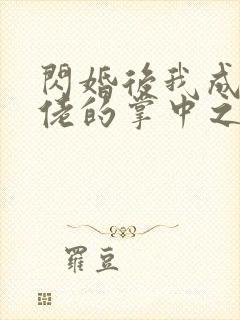 閃婚後我成
佬的掌中之
羅豆